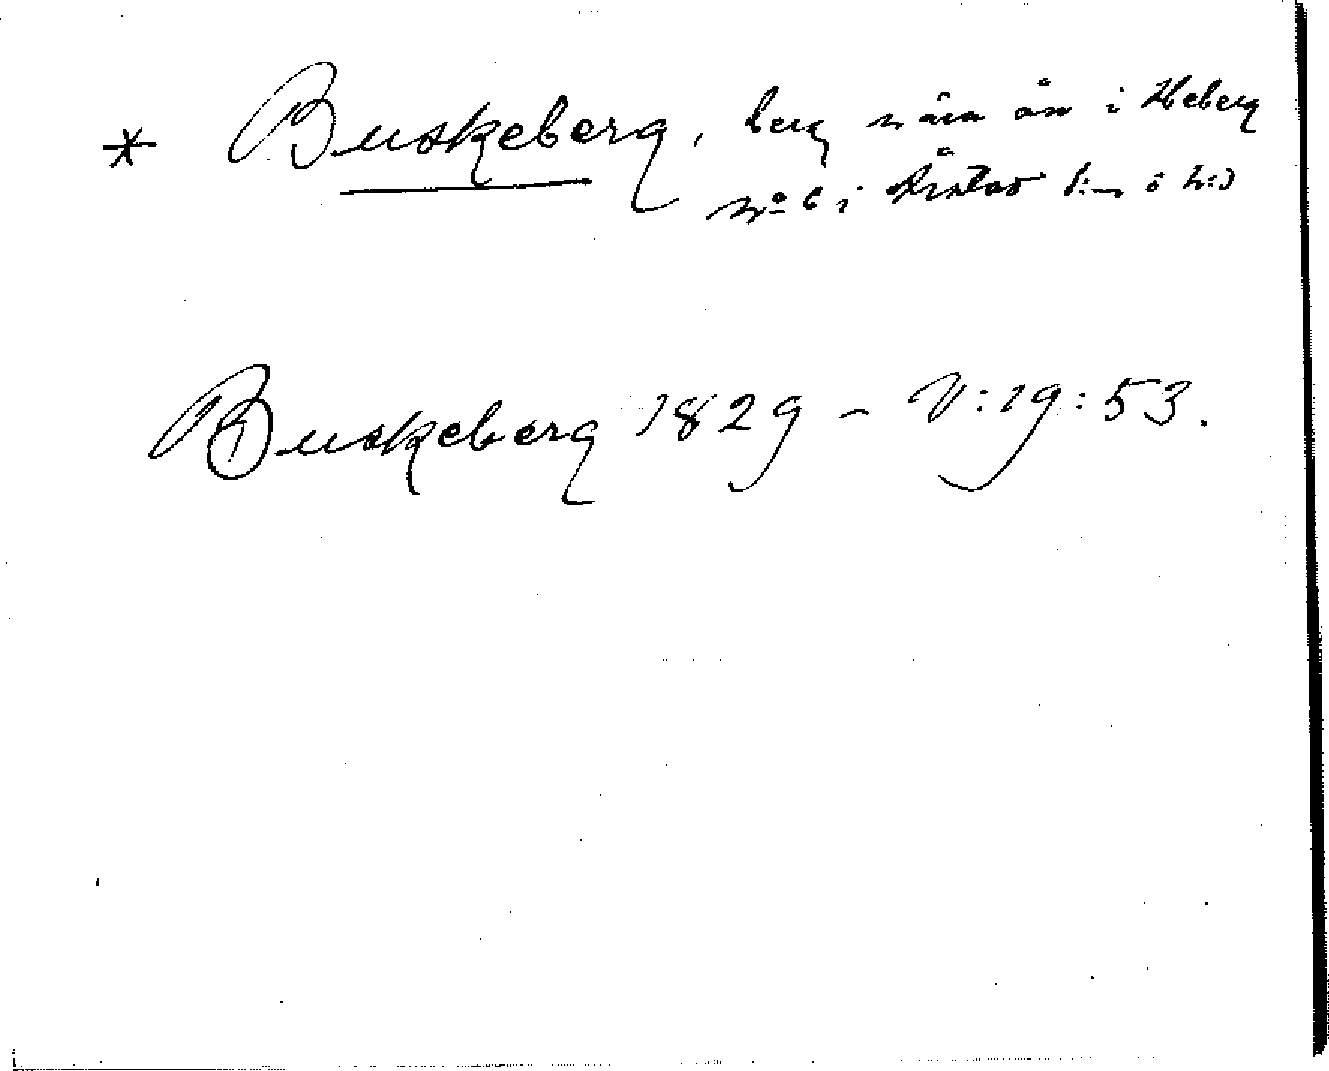 * Buskeberg, berg nära ån i Heberg
No 6 i Årstad
Buskeberg 1829 – V:19:53.